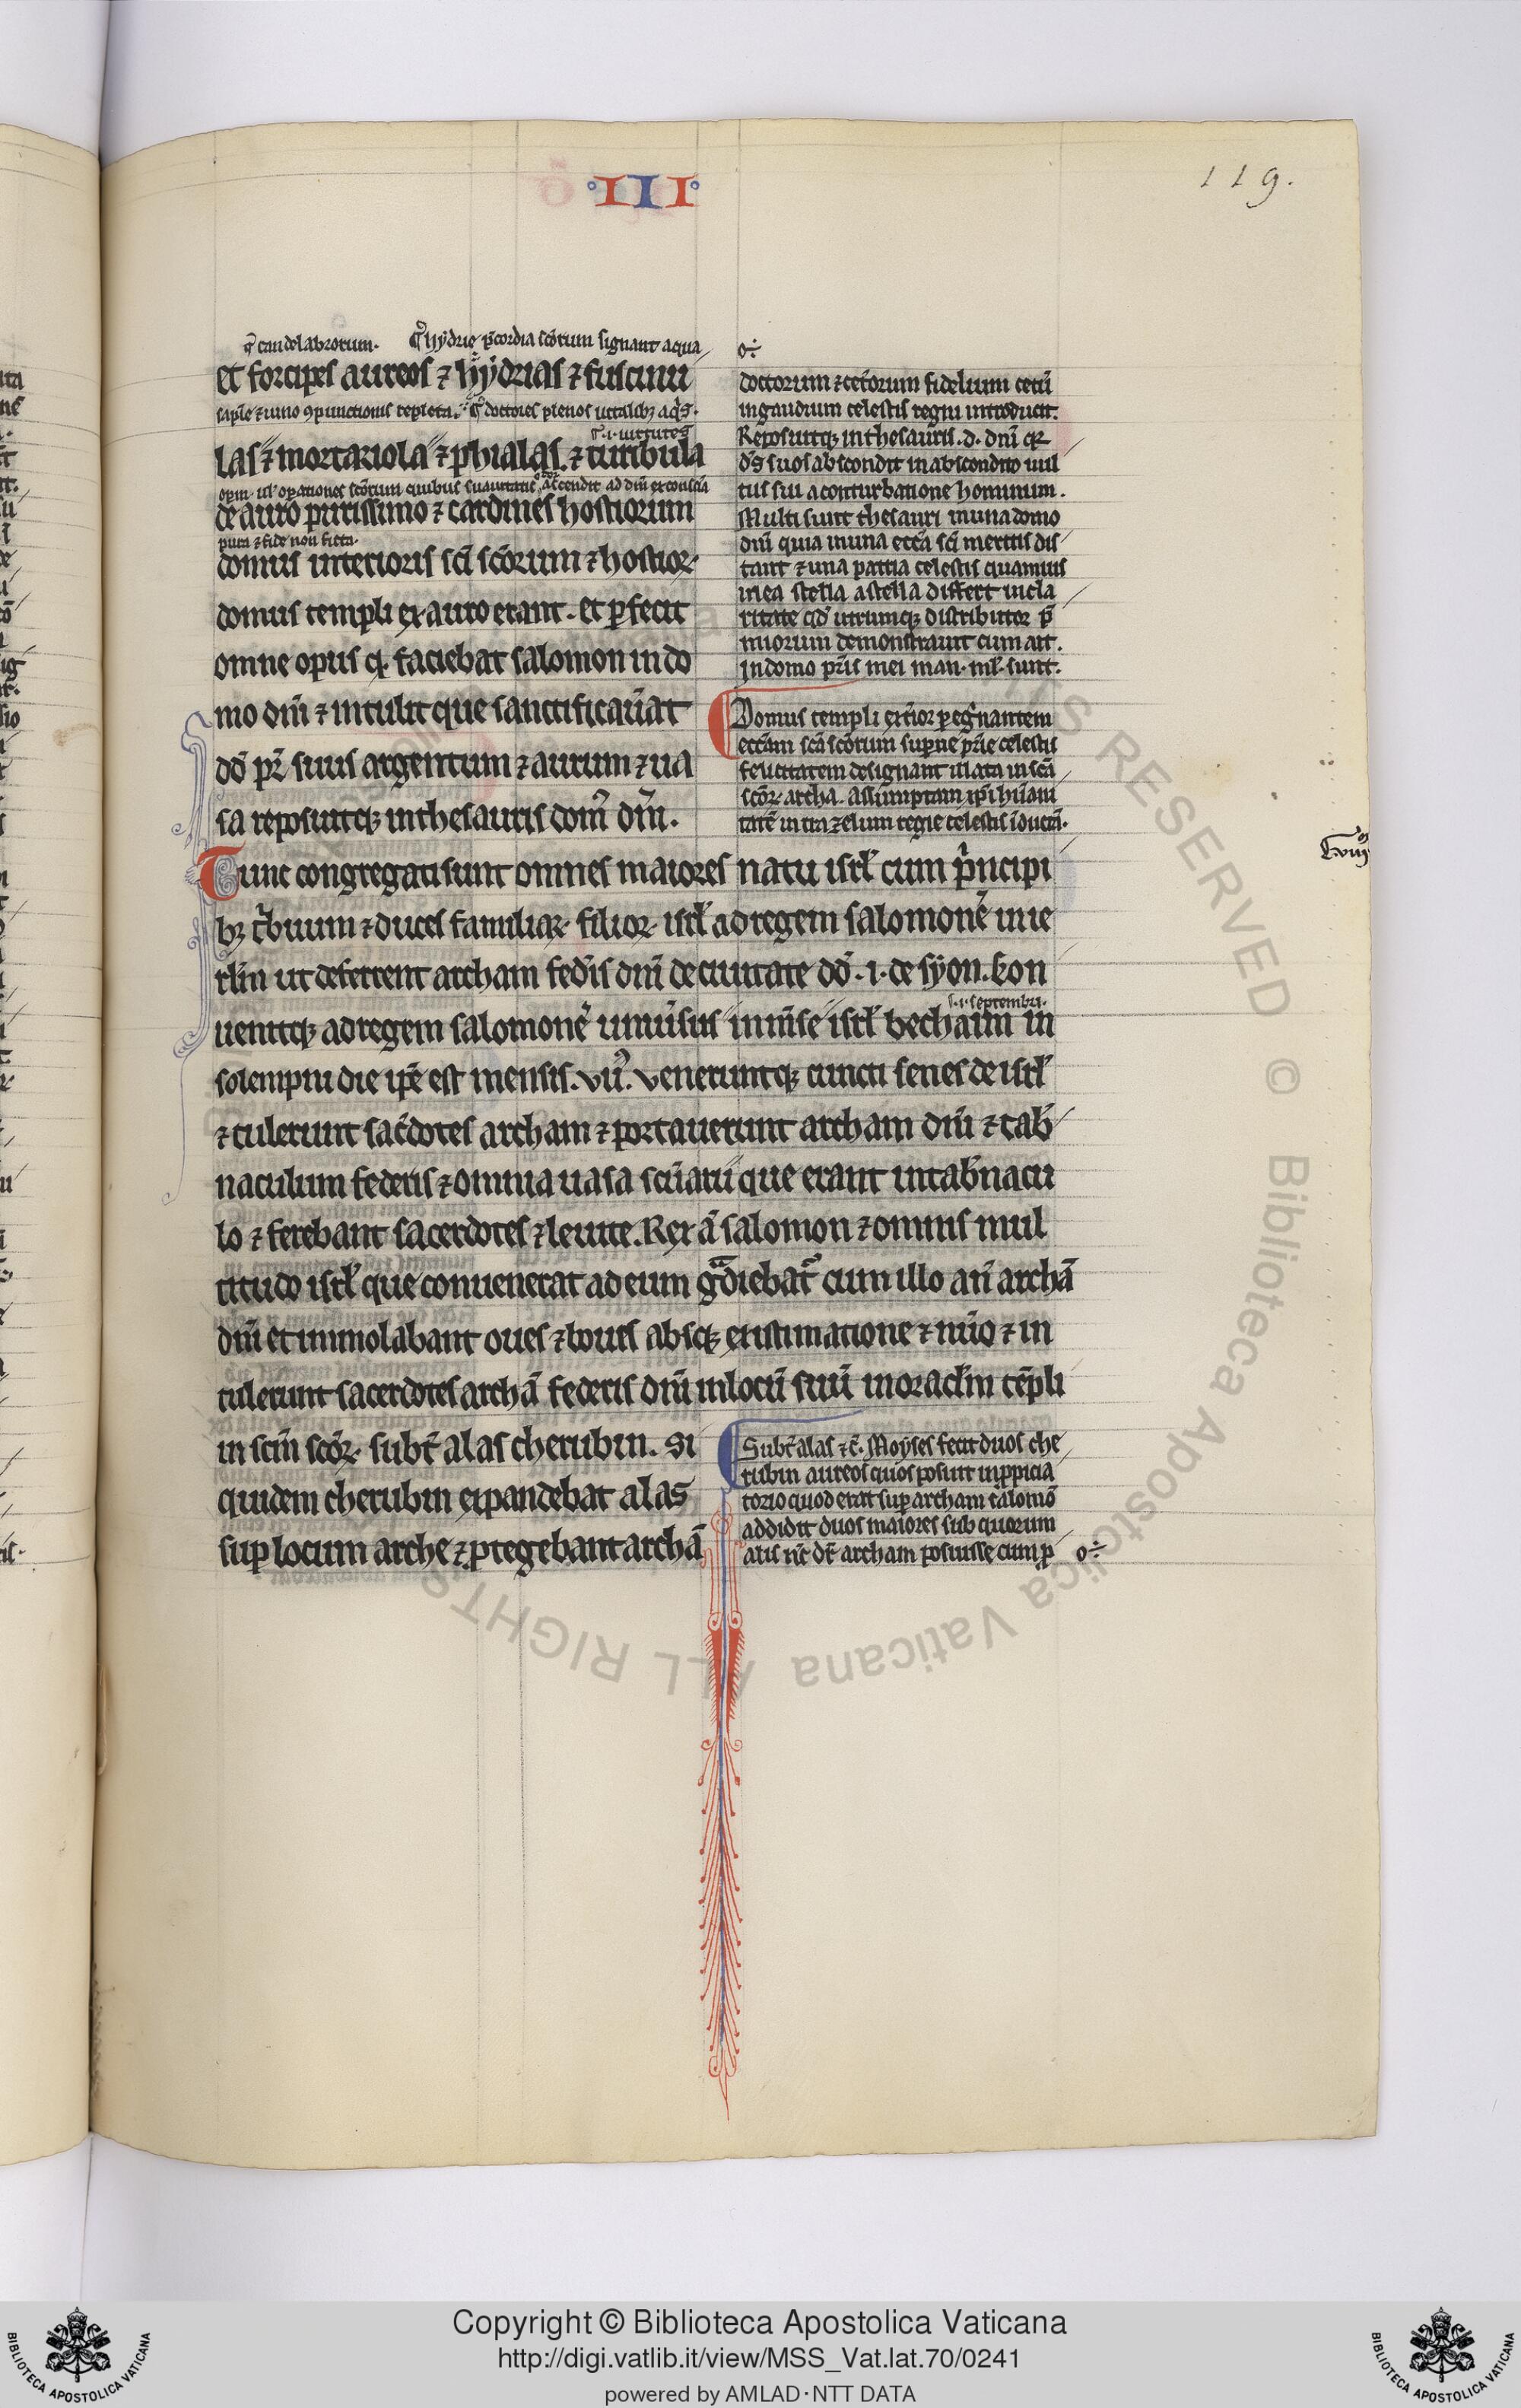 III
119.
q̄ candelabrorum. qͥ hydrie p̄cordia scōrum signant aqua
et forcipes aureos ⁊ hydrias ⁊ fuscinu
sapīe ⁊ uino ꝯpunctionis repleta. qͥ doctores plenos
.i. uirtutes
las ⁊ mortariola ⁊ phialas. ⁊ turibula
orōnes scōrum suauitatis ascendit ad dm̄
de auro purissimo ⁊ cardines hostiorum
pura ⁊ fide non ficta.
domus interioris sc̄i sc̄orum ⁊ hostioꝝ
domus templi ex auro erant. et ꝑfecit
omne opus q̄ faciebat salomon in do
mo dn̄i ⁊ intulit que sanctificau̅at
dd̄ pr̄ suus argentum ⁊ aurum ⁊ ua
sa reposuitqꝫ in thesauris dom̄ dn̄i.
o÷
doctorum ⁊ cet̄orum fidelium cetū
in gaudium celestis regni introducit.
Reposuitqꝫ in thesauris .d. dn̄i qꝛ
dn̄s suos abscondit in abscondito uul
tus sui a conturbatione hominum.
Multi sunt thesauri in una domo
dn̄i quia in una ecc̄a sc̄i meritis dis
tant ⁊ una patria celestis quamuis
in ea stella a stella differt in cla
ritate qd̄ utrumqꝫ distributor p̄
miorum demonstrauit cum ait.
In domo pr̄is mei man. ml̄. sunt.
Domus templi ext̄ior ꝑegͥnantem
ecc̄am sc̄a sc̄orum suꝑne pr̄ie celestis
felicitatem designant illata in sc̄a
sc̄oꝝ archa. assumptam xp̄i hūani
tatē intra uelum regie celestis
Tunc congregati sunt omnes maiores natu isrl̄ cum pͥncipi
bꝫ tͥbuum ⁊ duces familiaꝝ filioꝝ isrl̄ ad regem salomonē in ie
rlm̄ ut deferrent archam fed̄is dn̄i de ciuitate dd̄ .i. de syon. Con
s. .i. septembri.
uenitqꝫ ad regem salomonē uniu̅sus in mēse isrl̄ bechaim in
solempni die ip̄e est mensis. vijͦ. Veneruntqꝫ cuncti senes de isrl̄
⁊ tulerunt sac̄dotes archam ⁊ portauerunt archam dn̄i ⁊ tab̄
naculum federis ⁊ omnia uasa sc̄uarii que erant in tab̄nacu
lo ⁊ ferebant sacerdotes ⁊ leuite. Rex ā salomon ⁊ omnis mul
titudo isrl̄ que conuenerat ad eum gͣdiebatᷣ cum illo an̄ archā
dn̄i et immolabant oues ⁊ boues absqꝫ existimatione ⁊ nūo ⁊ in
tulerunt sacerdotes archā federis dn̄i in locū suū in oraclm̄ tēpli
in scm̄ sc̄oꝝ. subt̄ alas cherubin. Si
quidem cherubin expandebat alas
suꝑ locum arche ⁊ ꝓtegebant archā
Subt̄ alas ⁊c̄. Moyses fecit duos che
rubin aureos quos posuit in ꝓpicia
torio quod erat suꝑ archam salomō
addidit duos maiores sub quorum
alis nc̄ dr̄ archam posuisse cum ꝑ
o÷
Copyright © Biblioteca Apostolica Vaticana
http://digi.vatlib.it/view/MSS_Vat.lat.70/0241
powered by AMLAD·NTT DATA
BIBLIOTECA APOSTOLICA VATICANA
BIBLIOTECA APOSTOLICA VATICANA
ALL RIGHTS RESERVED © Biblioteca Apostolica Vaticana